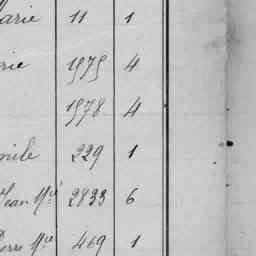 Marie 11 1
rie 1979 4
1978 4
mile 229 1
Jean Mie 2833 6
Pierre Mie 469 1